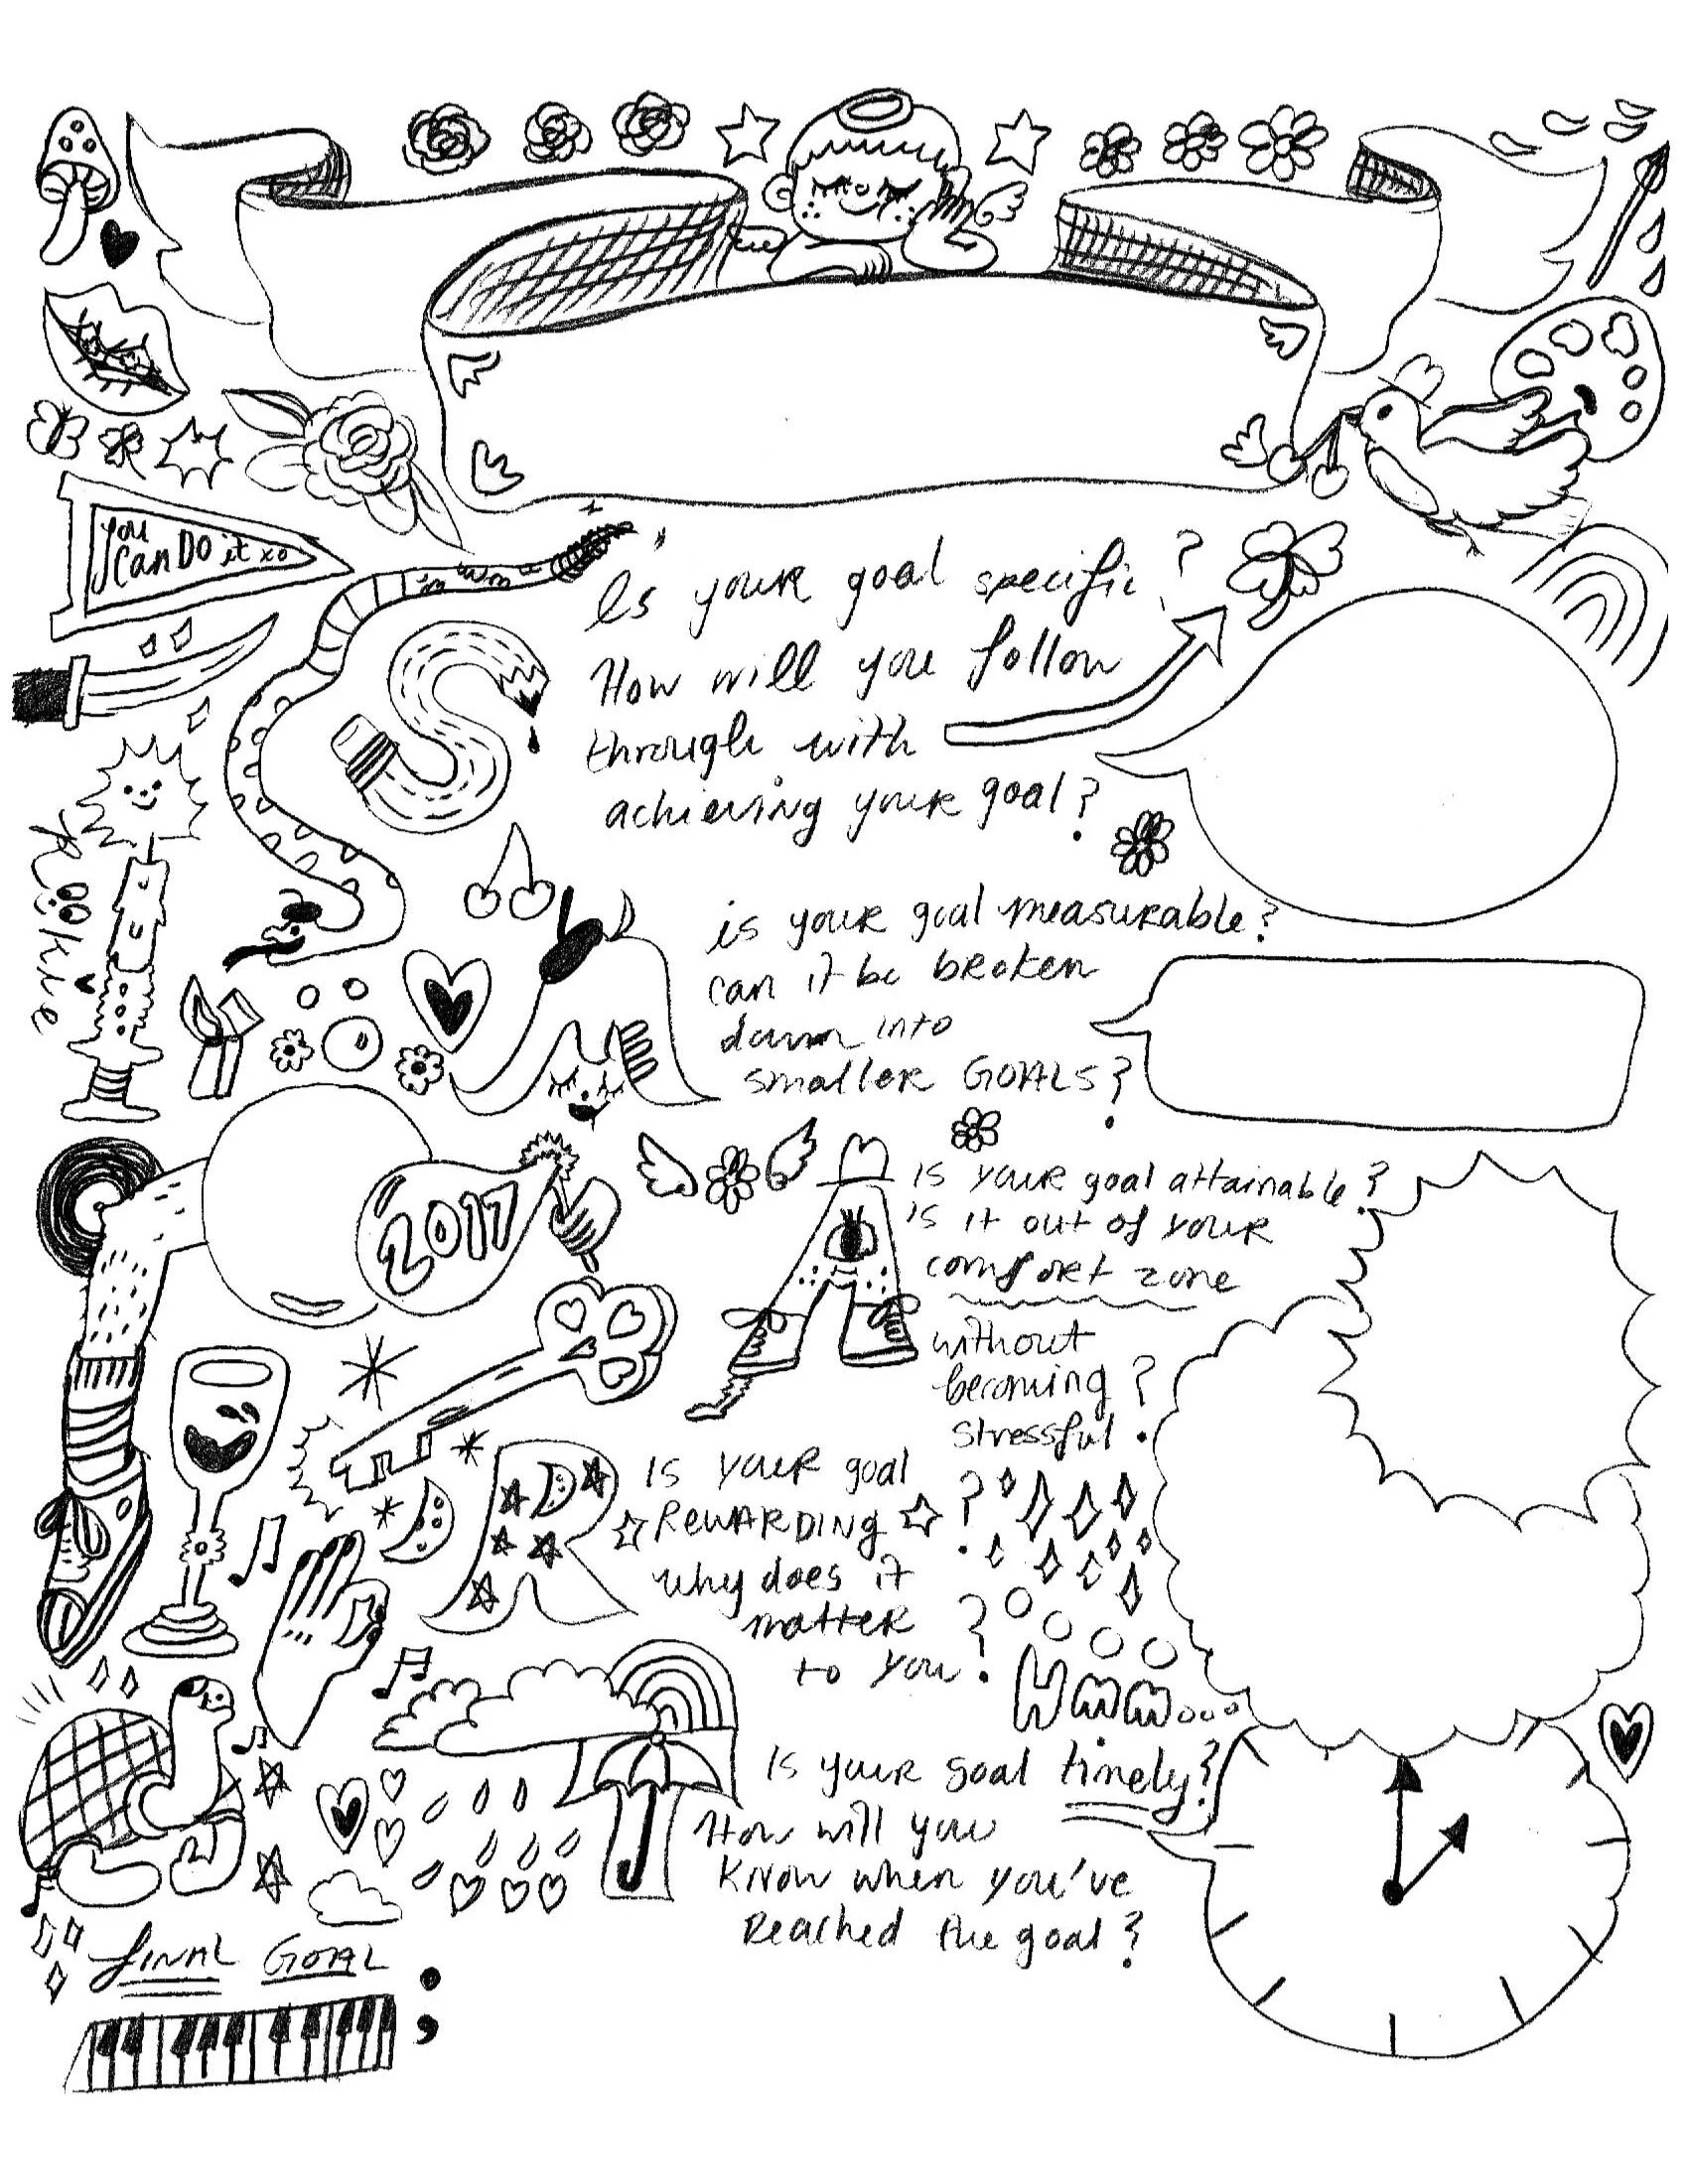 you
can Do it xo
Is your goal specific?
How will you follow
through with
achieving your goal?
S
Rookie
is your goal measurable?
can it be broken
down into
smaller GOALS?
M
2017
A
is your goal attainable?
is it out of your
comfort zone
without
becoming ?
stressful.
R
Is your goal
REWARDING ?
why does it
matter
to you?
Hmm...
T
Is your goal timely?
How will you
know when you've
Reached the goal?
FINAL GOAL ;